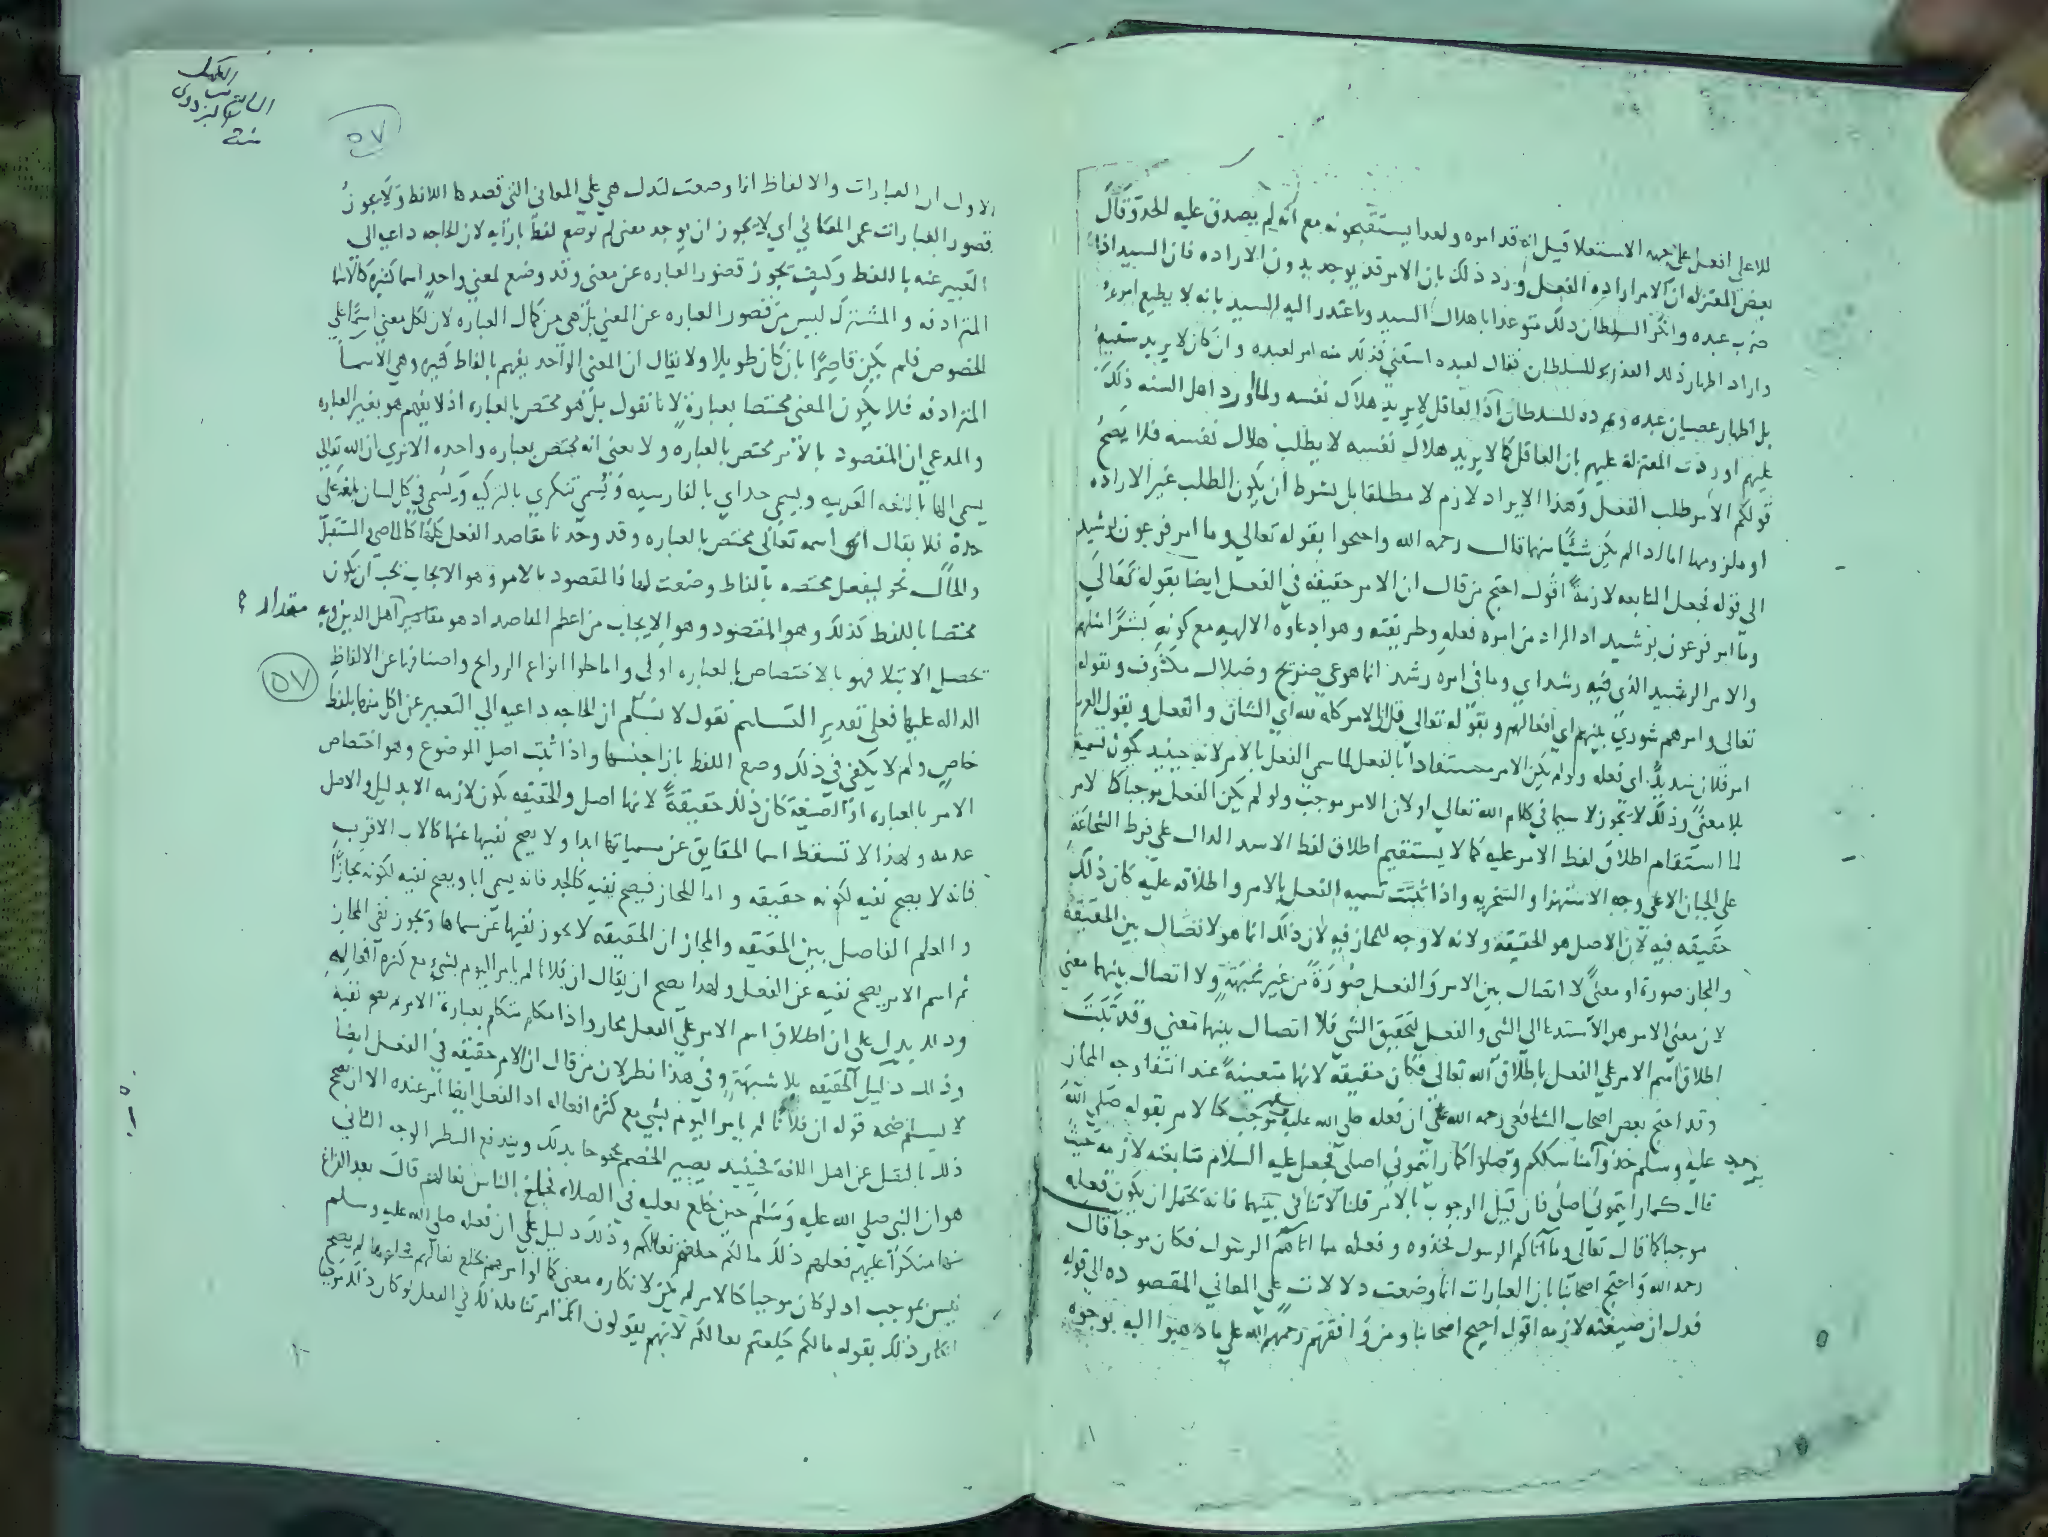 للاعلى افعل على جهه الاستعلا قيل انه قد امره ولهدا يستقبحونه مع انه لم يصدق عليه الحد وقال
بعض المعتزله ان الامر اراده الفعل ورد ذلك بان الامر قد يوجد بدون الاراده فان السيد اذا
ضرب عبده وانكر السلطان ذلك متوعدا باهلاك السيد واعتدر اليه السيد بانه لا يطيع امره
واراد اظهار ذلك العذر للسلطان فقال لعبده اسقني فذلك منه امر لعبده وان كان لا يريد
بل اظهار عصيان عبده للسلطان اذ العاقل لا يريد هلاك نفسه ولما اورد اهل السنه ذلك
عليهم اوردت المعتزله عليهم بان العاقل كما لا يريد هلاك نفسه لا يطلب هلاك نفسه فلا يصح
قولكم الامر طلب الفعل وهذا الايراد لازم لا مطلقا بل بشرط ان يكون الطلب غير الاراده
او ملزومها اما اذا لم يكن شئيا منهما قال رحمه الله واحتجوا بقوله تعالى وما امر فرعون برشيد
الى قوله فجعل المتابعه لازمة اقول احتج من قال ان الامر حقيقه في الفعل ايضا بقوله تعالى
وما امر فرعون برشيد اد المراد من امره فعله وطريقته وهو ادعاوه الالهيه مع كونه بشرا مثلهم
والامر الرشيد الذي فيه رشد اي وما في امره رشد انما هو غي صريح وضلال مكشوف وبقوله
تعالى وامرهم شوري بينهم اي افعالهم وبقوله تعالى قل ان الامر كله لله اي الشان والفعل وبقول العرب
امر فلان سديد اي فعله ولو لم يكن الامر مستفادا بالفعل لما سمي الفعل بالامر لانه حينيد يكون تسميه
بلا معنى وذلك لا يجوز لا سيما في كلام الله تعالى اولان الامر موجب ولو لم يكن الفعل موجبا كالامر
لما استقام اطلاق لفظ الامر عليه كما لا يستقيم اطلاق لفظ الاسد الدال على فرط الشجاعة
على الجبان الا على وجه الاستهزا والسخريه واذا ثبتت تسميه الفعل بالامر واطلاقه عليه كان ذلك
حقيقه فيه لان الاصل هو الحقيقه ولانه لا وجه للمجاز فيه لان ذلك انما هو لاتصال بين الحقيقة
والمجاز صورة او معنى لا اتصال بين الامر والفعل صورة من غير شبهة ولا اتصال بينهما معنى
لان معنى الامر هو الاستدعا الى الشي والفعل لتحقيق الشي فلا اتصال بينهما معني وقد ثبتت
اطلاق اسم الامر على الفعل باطلاق الله تعالى فكان حقيقه لانها متعينة عند انتفا وجه المجاز
وقد احتج بعض اصحاب الشافعى رحمه الله على ان فعله صلى الله عليه موجب كالامر بقوله صلى الله
عليه وسلم خذوا مناسككم وصلوا كما رايتموني اصلى فجعل عليه السلام متابعته لازمه حيث
قال كما رايتموني اصلى فان قيل الوجوب بالامر قلنا لا تنافى بينهما فانه يحتمل ان يكون فعله
موجبا كما قال تعالى وما آتاكم الرسول فخذوه وفعله مما اتاكم الرسول فكان موجبا قال
رحمه الله واحتج اصحابنا بان العبارات انما وضعت دلالات على المعاني المقصوده الى قوله
فدل ان صيغته لازمه اقول احتج اصحابنا ومن وافقهم رحمهم الله على ما ذهبوا اليه بوجوه
٥٧
الاول ان العبارات والالفاظ انما وضعت لتدل هي على المعاني التي قصدها اللافظ ولا يجوز
قصور العبارات عن المعاني اي لا يجوز ان يوجد معنى لم يوضع لفظ بازايه لان الحاجه داعيه الى
التعبير عنه باللفظ وكيف يجوز قصور العباره عن معنى وقد وضع لمعني واحد اسما كثيره كالاسما
المترادفه والمشترك ليس من قصور العباره عن المعني بل هي من كمال العباره لان لكل معنى اسما على
الخصوص فلم يكن قاصرا بان كان طويلا ولا يقال ان المعنى الواحد يفهم بالفاظ كثيره وهي الاسما
المترادفه فلا يكون المعنى مختصا بعبارة لانا نقول بل هو مختص بالعباره اذ لا يفهم هو بغير العباره
والمدعي ان المقصود بالامر مختص بالعباره ولا نعنى انه مختص بعباره واحده الا ترى ان الله تعالى
يسمى الها باللغه العربيه ويسمى خداي بالفارسيه ويسمى تنكري بالتركيه ويسمي في كل لسان بلغه على
حدة فلا يقال ان اسمه تعالى مختص بالعباره وقد وجدنا مقاصد الفعل كلها كالماضي والمستقبل
والحال نحو ليفعل مختصه بالفاظ وضعت لها فالمقصود بالامر وهو الايجاب يجب ان يكون
مختصا باللفظ كذلك وهو المقصود وهو الايجاب من اعظم المقاصد اد هو اهل الدين وبه
مقدار ؟
يحصل الابتلا فهو بالاختصاص بالعباره اولى واما خلوا انواع الروايح واصنافها عن الالفاظ
٥٧
الداله عليها فعلى تقدير التسليم نقول لا نسلم ان الحاجه داعيه الي التعبير عن كل منها بلفظ
خاص ولم لا يكفى في ذلك وضع اللفظ بازا جنسها واذا ثبت اصل الموضوع وهو اختصاص
الامر بالعباره او الصيغة كان ذلك حقيقة لانها اصل والحقيقه يكون لازمه الا بدليل والاصل
عدمه ولهذا لا تسقط اسما الحقايق عن مسمياتها ابدا ولا يصح نفيها عنها كالاب الاقرب
فانه لا يصح نفيه لكونه حقيقه واما المجاز فيصح نفيه كالجد فانه يسمى ابا ويصح نفيه لكونه مجازا
والعلم الفاصل بين الحقيقه والمجاز ان الحقيقه لا يجوز نفيها عن مسماها ويجوز نفى المجاز
ثم اسم الامر يصح نفيه عن الفعل ولهدا يصح ان يقال ان فلانا لم يامر اليوم بشى مع كثره افعاله
وذلك يدل على ان اطلاق اسم الامر على الفعل مجاز واذا تكلم متكلم بعبارة الامر لم يصح نفيه
وذلك دليل الحقيقه بلا شبهة وفي هذا نظر لان من قال ان الامر حقيقه في الفعل ايضا
لا يسلم صحه قوله ان فلانا لم يامر اليوم بشي مع كثره افعاله اد الفعل ايضا امر عنده الا ان يصح
ذلك بالنقل عن اهل اللغة فحينيد يصير الخصم محجوجا بدلك ويندفع النظر الوجه الثاني
هو ان النبي صلى الله عليه وسلم حين خلع نعليه في الصلاه فخلع الناس نعالهم قال بعد الفراغ
منها منكرا عليهم فعلهم ذلك مالكم خلعتم نعالكم وذلك دليل على ان فعله صلى الله عليه وسلم
ليس بموجب اد لو كان موجبا كالامر لم يكن لانكاره معنى كما لو امرهم بخلع نعالهم فخلعوها لم يصح
انكار ذلك بقوله مالكم خلعتم نعالكم لانهم يقولون